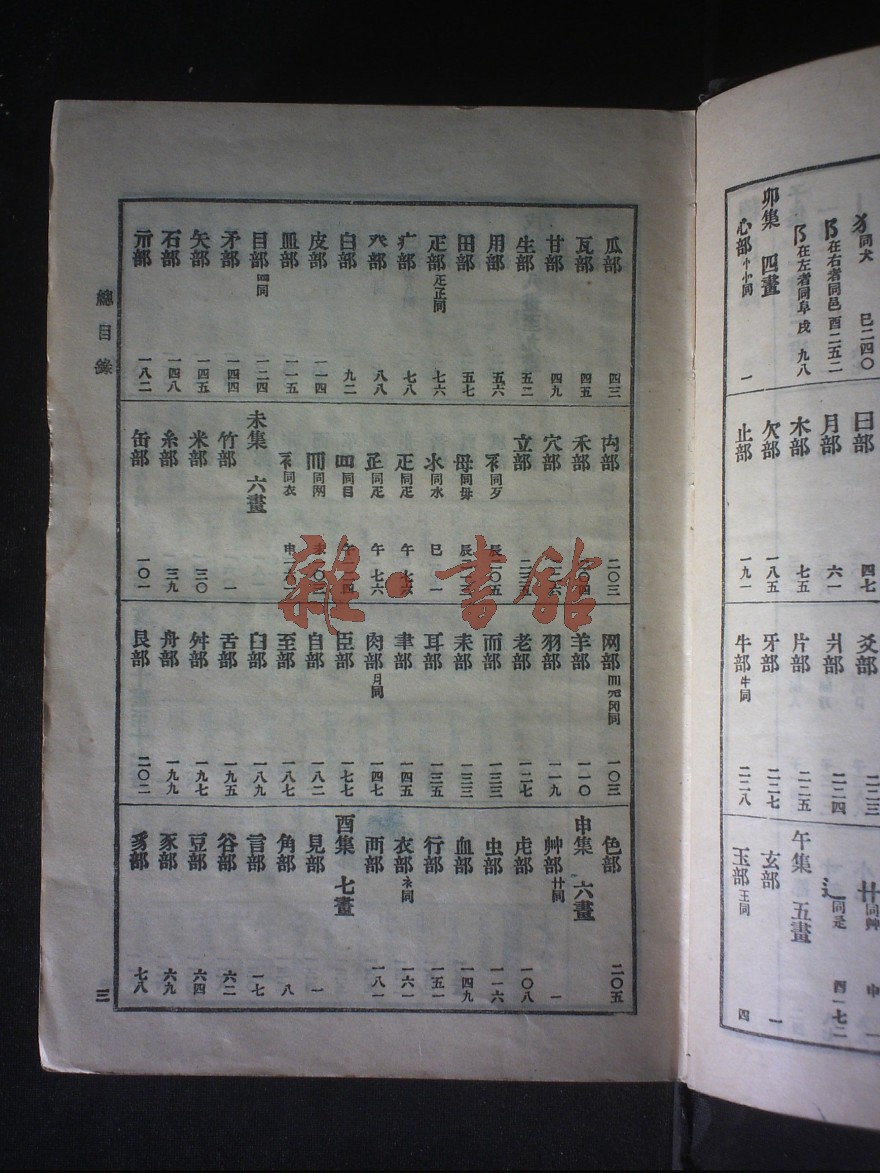 犭同犬 巳二四〇
阝在右者同邑 酉二五二
阝在左者同阜 戌 九八
卯集 四畫
心部 忄㣺同 一
曰部 四七
月部 六一
木部 七五
欠部 一八五
止部 一九一
爻部 二二三
爿部 二二四
片部 二二五
牙部 二二七
牛部 牜同 二二八
艹同艸 申 一
辶同辵 酉一七二
午集 五畫
玄部 一
玉部 王同 四
瓜部 四三
瓦部 四五
甘部 四九
生部 五二
用部 五六
田部 五七
疋部 𤴔𤴓同 七六
疒部 七八
癶部 八八
白部 九二
皮部 一一四
皿部 一一五
目部 罒同 一二四
矛部 一四四
矢部 一四五
石部 一四八
示部 一八二
禸部 二〇三
禾部 二〇四
穴部
立部 二三五
歺同歹 辰二〇五
母同毋 辰
氺同水 巳 一
𤴓同疋 午 七六
𤴔同疋 午 七六
罒同目 午
罒同网 未一〇三
衤同衣 申一六一
未集 六畫
竹部 一
米部 三〇
糸部 三九
缶部 一〇一
网部 罒㓁冈同 一〇三
羊部 一一〇
羽部 一一九
老部 一二七
而部 一三三
耒部 一三三
耳部 一三五
聿部 一四五
肉部 月同 一四七
臣部 一七七
自部 一八二
至部 一八七
臼部 一八九
舌部 一九五
舛部 一九七
舟部 一九九
艮部 二〇二
色部 二〇五
申集 六畫
艸部 艹同 一
虍部 一〇八
虫部 一一六
血部 一四九
行部 一五一
衣部 衤同 一六一
襾部 一八一
酉集 七畫
見部 一
角部 八
言部 一七
谷部 六二
豆部 六四
豕部 六九
豸部 七八
總目錄
三
雜·書館